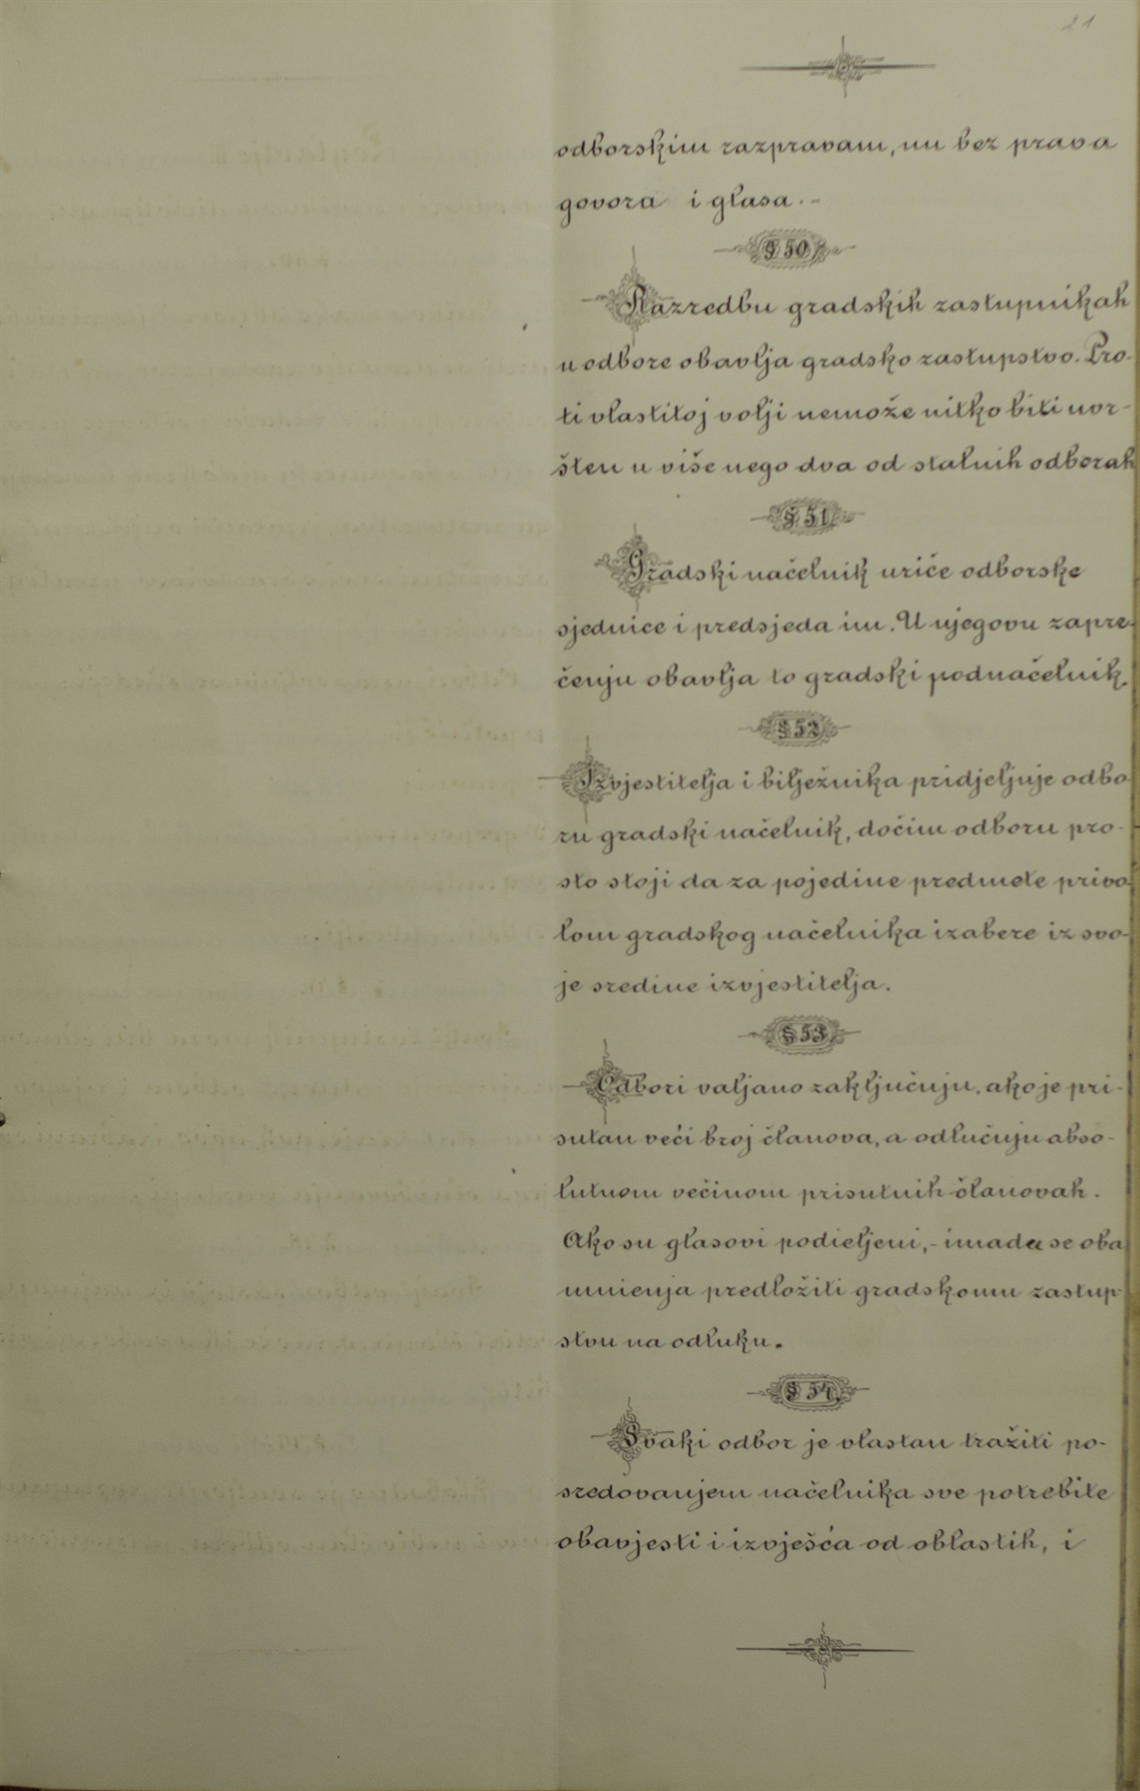 21
odborskim razpravam, nu bez prava
govora i glasa. -
§ 50.
Razredbu gradskih zastupnikah
u odbore obavlja gradsko zastupstvo. Pro-
ti vlastitoj volji nemože nitko biti uvr-
šten u više nego dva od stalnih odborah
§ 51.
Gradski načelnik uriče odborske
sjednice i predsjeda im. U njegovu zapre-
čenju obavlja to gradski podnačelnik.
§ 52.
Izvjestitelja i bilježnika pridjeljuje odbo-
ru gradski načelnik, dočim odboru pro-
sto stoji da za pojedine predmete privo-
lom gradskog načelnika izabere iz svo-
je sredine izvjestitelja.
§ 53.
Odbori valjano zaključuju, ako je pri-
sutan veći broj članova, a odlučuju abso-
lutnom većinom prisutnih članovah.
Ako su glasovi podieljeni, - imada se oba
mnienja predložiti gradskomu zastup-
stvu na odluku.
§ 54.
Svaki odbor je vlastan tražiti po-
sredovanjem načelnika sve potrebite
obavjesti i izvješća od oblastih, i